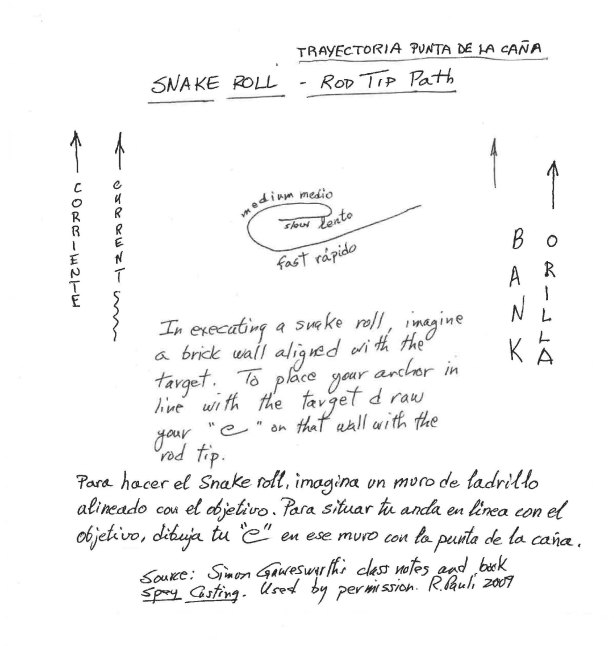 TRAYECTORIA PUNTA DE LA CAÑA
SNAKE ROLL - ROD TIP Path
CORRIENTE
CURRENT
medium medio
slow lento
fast rápido
BANK
ORILLA
In executing a snake roll, imagine
a brick wall aligned with the
target. To place your anchor in
line with the target draw
your "e" on that wall with the
rod tip.
Para hacer el Snake roll, imagina un muro de ladrillo
alineado con el objetivo. Para situar tu ancla en línea con el
objetivo, dibuja tu "e" en ese muro con la punta de la caña.
Source: Simon Gawesworth's class notes and book
Spey Casting. Used by permission. R. Pauli 2009